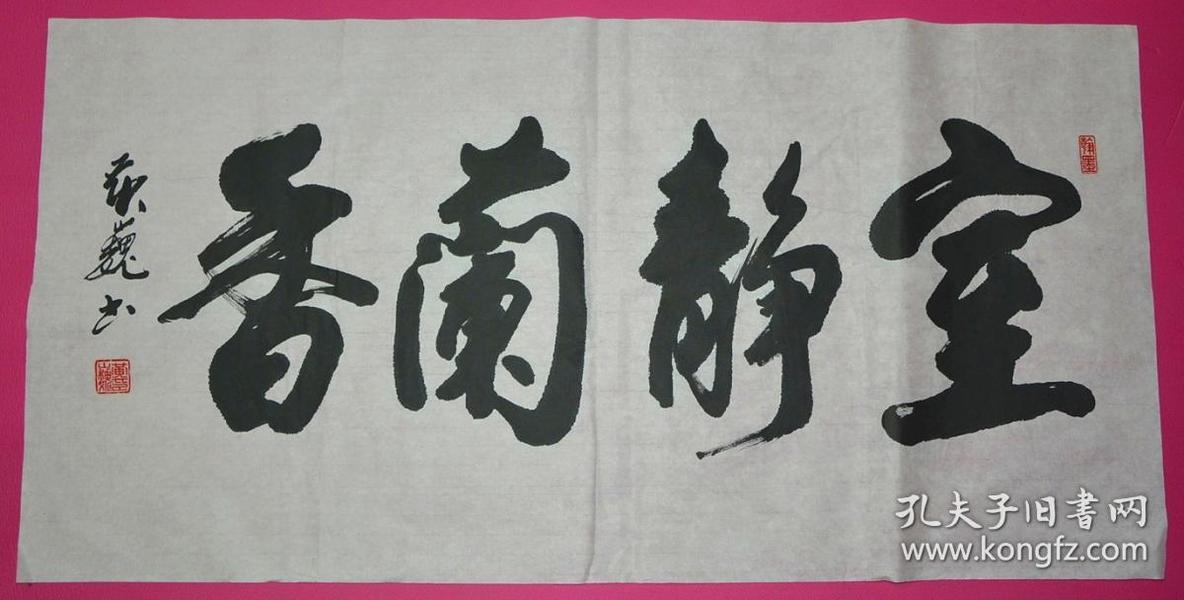 室靜蘭香
黄巍书
翰墨
孔夫子旧書网
www.kongfz.com